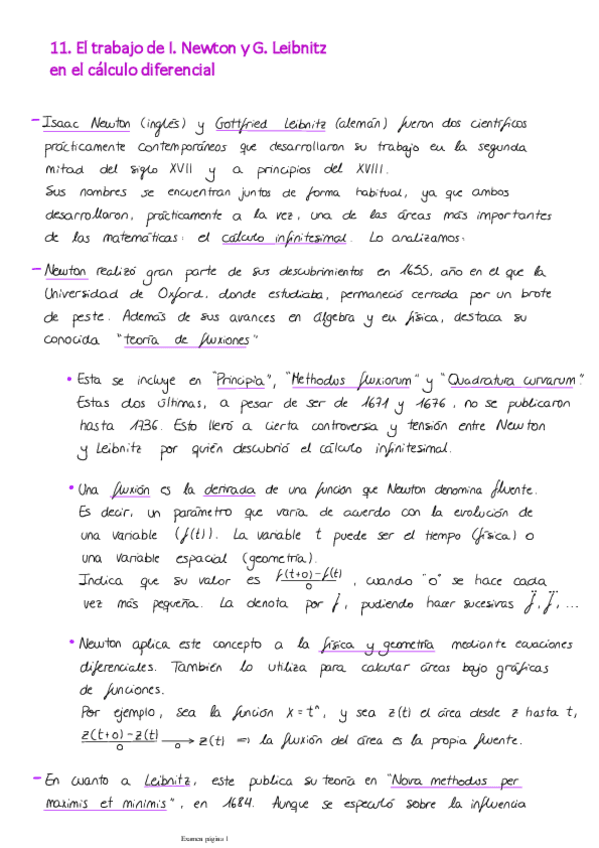 11. El trabajo de I. Newton y G. Leibnitz
en el cálculo diferencial
- Isaac Newton (inglés) y Gottfried Leibnitz (alemán) fueron dos científicos
prácticamente contemporáneos que desarrollaron su trabajo en la segunda
mitad del siglo XVII y a principios del XVIII.
Sus nombres se encuentran juntos de forma habitual, ya que ambos
desarrollaron, prácticamente a la vez, una de las áreas más importantes
de las matemáticas: el cálculo infinitesimal. Lo analizamos:
- Newton realizó gran parte de sus descubrimientos en 1655, año en el que la
Universidad de Oxford, donde estudiaba, permaneció cerrada por un brote
de peste. Además de sus avances en álgebra y en física, destaca su
conocida "teoría de fluxiones"
• Esta se incluye en "Principia", "Methodus fluxiorum" y "Quadratura curvarum".
Estas dos últimas, a pesar de ser de 1671 y 1676, no se publicaron
hasta 1736. Esto llevó a cierta controversia y tensión entre Newton
y Leibnitz por quién descubrió el cálculo infinitesimal.
• Una fluxión es la derivada de una función que Newton denomina fluente.
Es decir, un parámetro que varía de acuerdo con la evolución de
una variable (f(t)). La variable t puede ser el tiempo (física) o
una variable espacial (geometría).
Indica que su valor es f(t+o)-f(t)/o, cuando "o" se hace cada
vez más pequeña. La denota por ḟ, pudiendo hacer sucesivas f̈, f⃛, ...
• Newton aplica este concepto a la física y geometría mediante ecuaciones
diferenciales. También lo utiliza para calcular áreas bajo gráficas
de funciones.
Por ejemplo, sea la función x = tⁿ, y sea z(t) el área desde z hasta t,
z(t+o)-z(t)/o → z(t) ⇒ la fluxión del área es la propia fluente.
- En cuanto a Leibnitz, este publica su teoría en "Nova methodus per
maximis et minimis", en 1684. Aunque se especuló sobre la influencia
Examen página 1